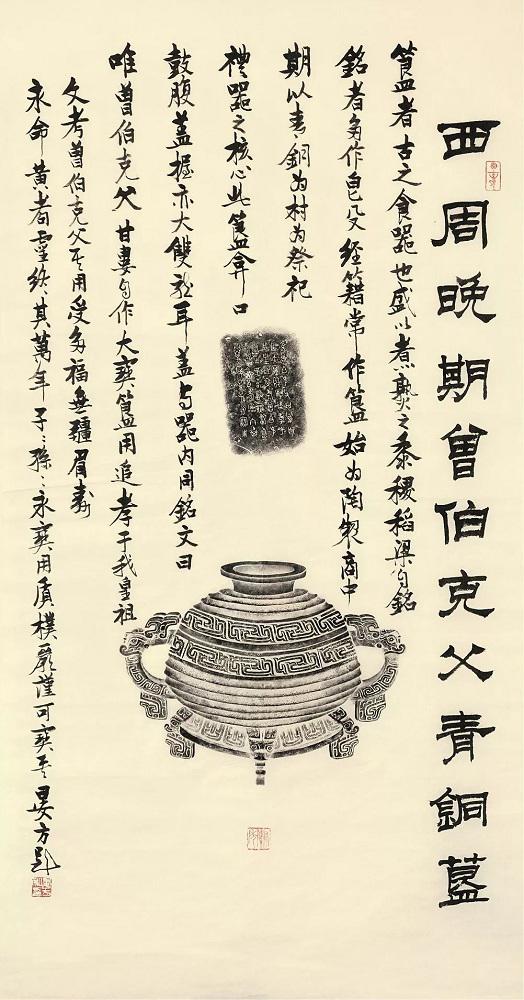 西周晚期曾伯克父青銅簋
簋者古之食器也盛以煮熟之黍稷稻梁自銘
銘者多作皀殳經籍常作簋始为陶製商中
期以青銅为材为祭祀
禮器之核心此簋弇口
鼓腹蓋握亦大雙龍耳蓋与器内同銘文曰
唯曾伯克父甘婁自作大寶簋用追孝于我皇祖
文考曾伯克父其用受多福無疆眉壽
永命黄耇霝終其萬年子〻孫〻永寶用質樸嚴謹可寶㞢晏方題